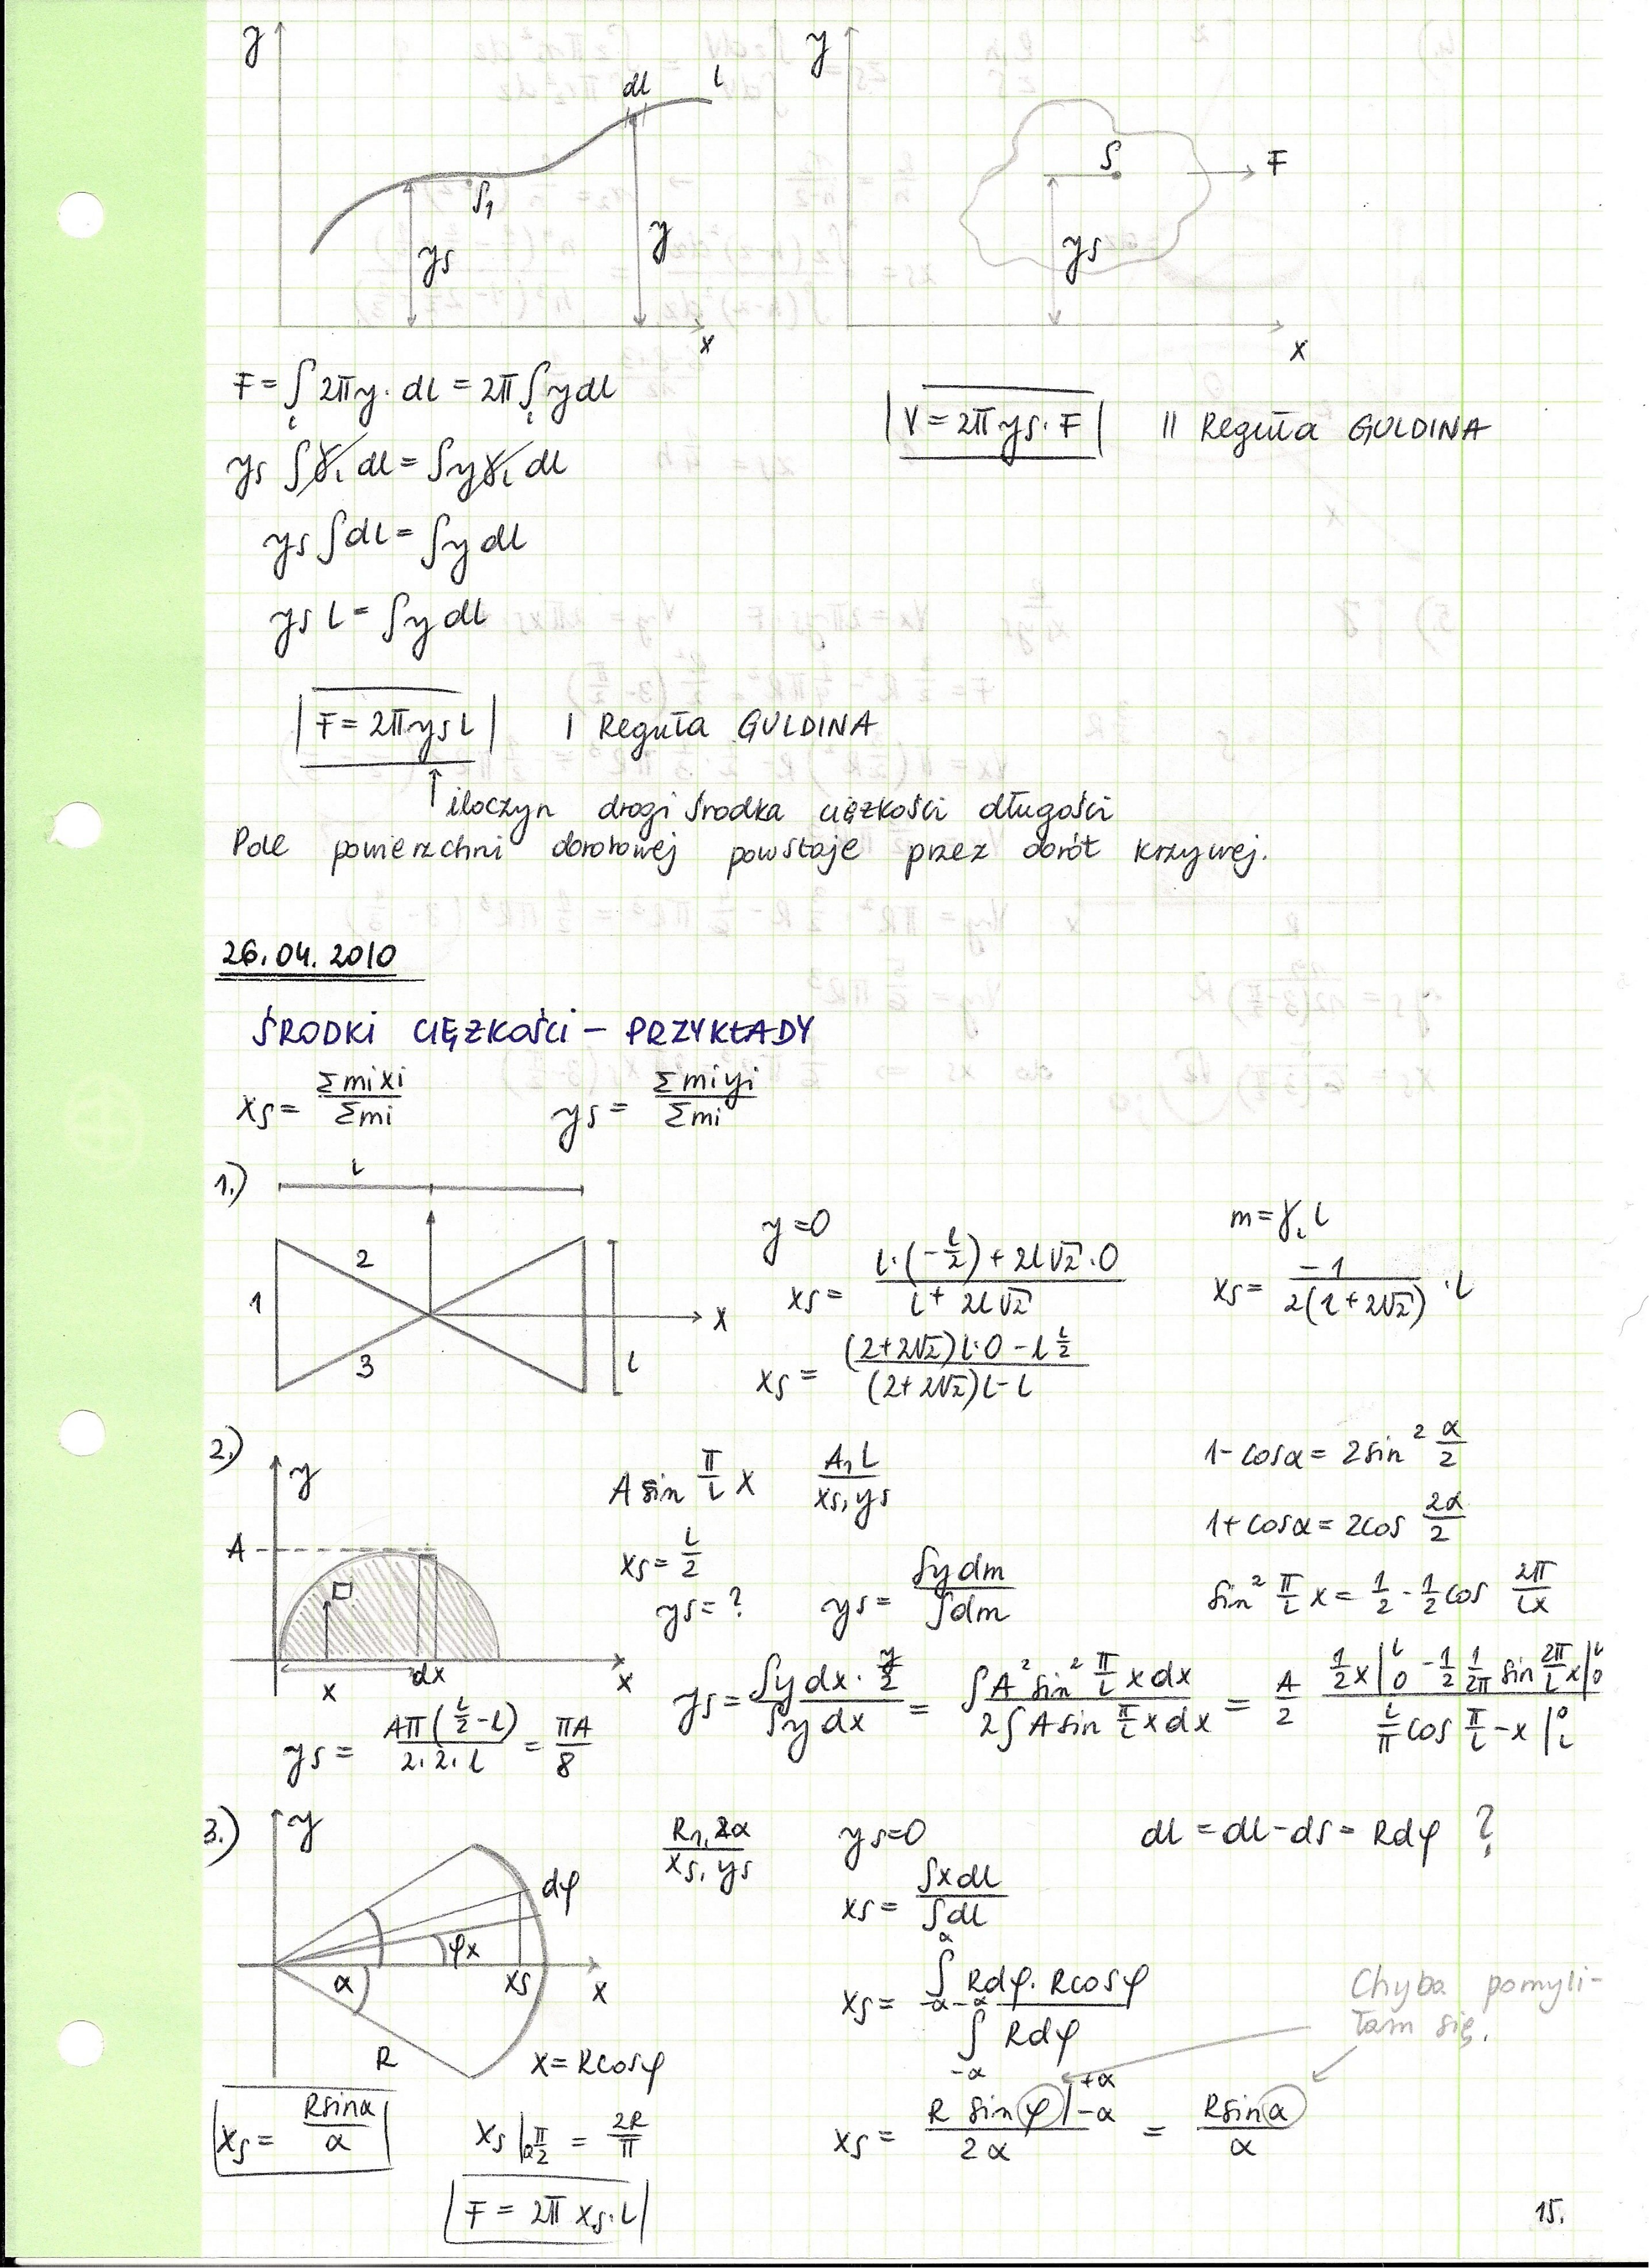 y
dl
l
S₁
ys
y
x
y
S
F
ys
x
F = ∫ 2πy · dl = 2π ∫ y dl
l l
ys ∫ γl dl = ∫ y γl dl
ys ∫ dl = ∫ y dl
ys l = ∫ y dl
|V = 2π ys · F| II Reguła GULDINA
|F = 2π ys l| I Reguła GULDINA
iloczyn drogi środka ciężkości długości
Pole powierzchni obrotowej powstaje przez obrót krzywej.
26.04.2010
ŚRODKI CIĘŻKOŚCI – PRZYKŁADY
xs = Σmixi / Σmi ys = Σmiyi / Σmi
1.)
l
2
1
3
x
l
y = 0
xs = (l · (-l/2) + 2l√2 · 0) / (l + 2l√2)
xs = ((2+2√2)l · 0 - l l/2) / ((2+2√2)l - l)
m = γl l
xs = -1 / 2(1+2√2) · l
2.)
y
A
x
dx
x
A sin π/l x A, L / xs, ys
xs = l/2
ys = ? ys = ∫ y dm / ∫ dm
1 - cosα = 2 sin² α/2
1 + cosα = 2cos 2α/2
sin² π/l x = 1/2 - 1/2 cos 2π/lx
ys = ∫ y dx · y/2 / ∫ y dx = ∫ A² sin² π/l x dx / 2∫ A sin π/l x dx = A/2 (1/2 x |₀ˡ - 1/2 1/2π sin 2π/l x |₀ˡ) / (l/π cos π/l - x |ₗ⁰)
ys = Aπ(l/2 - l) / 2·2·l = πA/8
3.)
y
dφ
φx
α
xs
x
R
x = Rcosφ
R, 2α / xs, ys
ys = 0
dl = dl - ds = Rdφ ?
xs = ∫ x dl / ∫ dl
α
xs = ∫ Rdφ · Rcosφ
-α -α
∫ Rdφ
-α
Chyba pomyli-
łam się.
xs = R sin φ |₋α⁺α / 2α = Rsinα / α
|xs = Rsinα / α| xs |α π/2 = 2R/π
|F = 2π xs · l|
15.